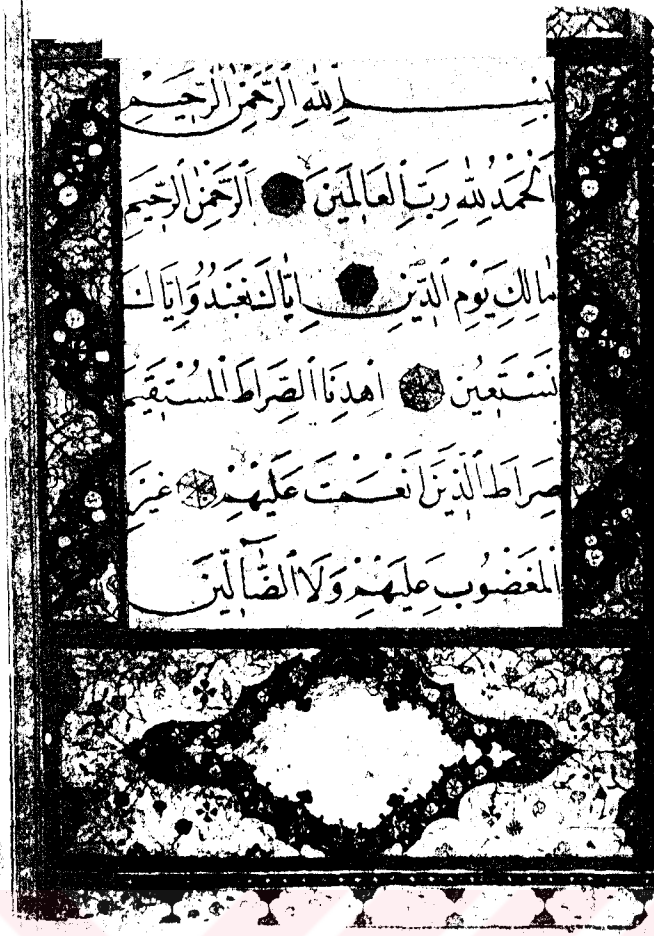 بِسْمِ اللهِ الرَّحْمٰنِ الرَّحِيمِ
اَلْحَمْدُ لِلّٰهِ رَبِّ الْعَالَمِينَ اَلرَّحْمٰنِ الرَّحِيمِ
مَالِكِ يَوْمِ الدِّينِ اِيَّاكَ نَعْبُدُ وَاِيَّاكَ
نَسْتَعِينُ اِهْدِنَا الصِّرَاطَ الْمُسْتَقِيمَ
صِرَاطَ الَّذِينَ اَنْعَمْتَ عَلَيْهِمْ غَيْرِ
الْمَغْضُوبِ عَلَيْهِمْ وَلَا الضَّٓالِّينَ